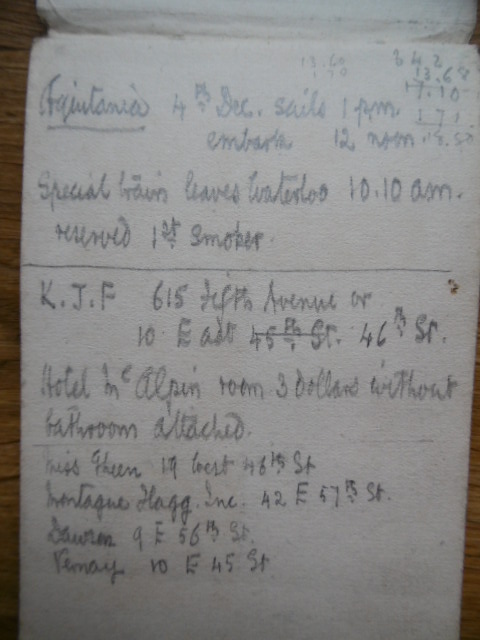 Aquitania 4th Dec. sails 1 pm
embark 12 noon
Special train leaves Waterloo 10.10 am.
reserved 1st Smoker.
K.J.F 615 Fifth Avenue or
10 East 45th St. 46th St.
Hotel McAlpin room 3 dollars without
bathroom attached.
Miss 19 West 46th St
Montague Flagg. Inc. 42 E 57th St.
Dawson 9 E 56th St.
Vernay 10 E 45 St